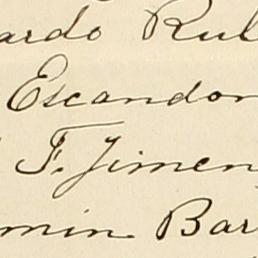 ardo Rul
Escandon
F. Jimen
min Bar